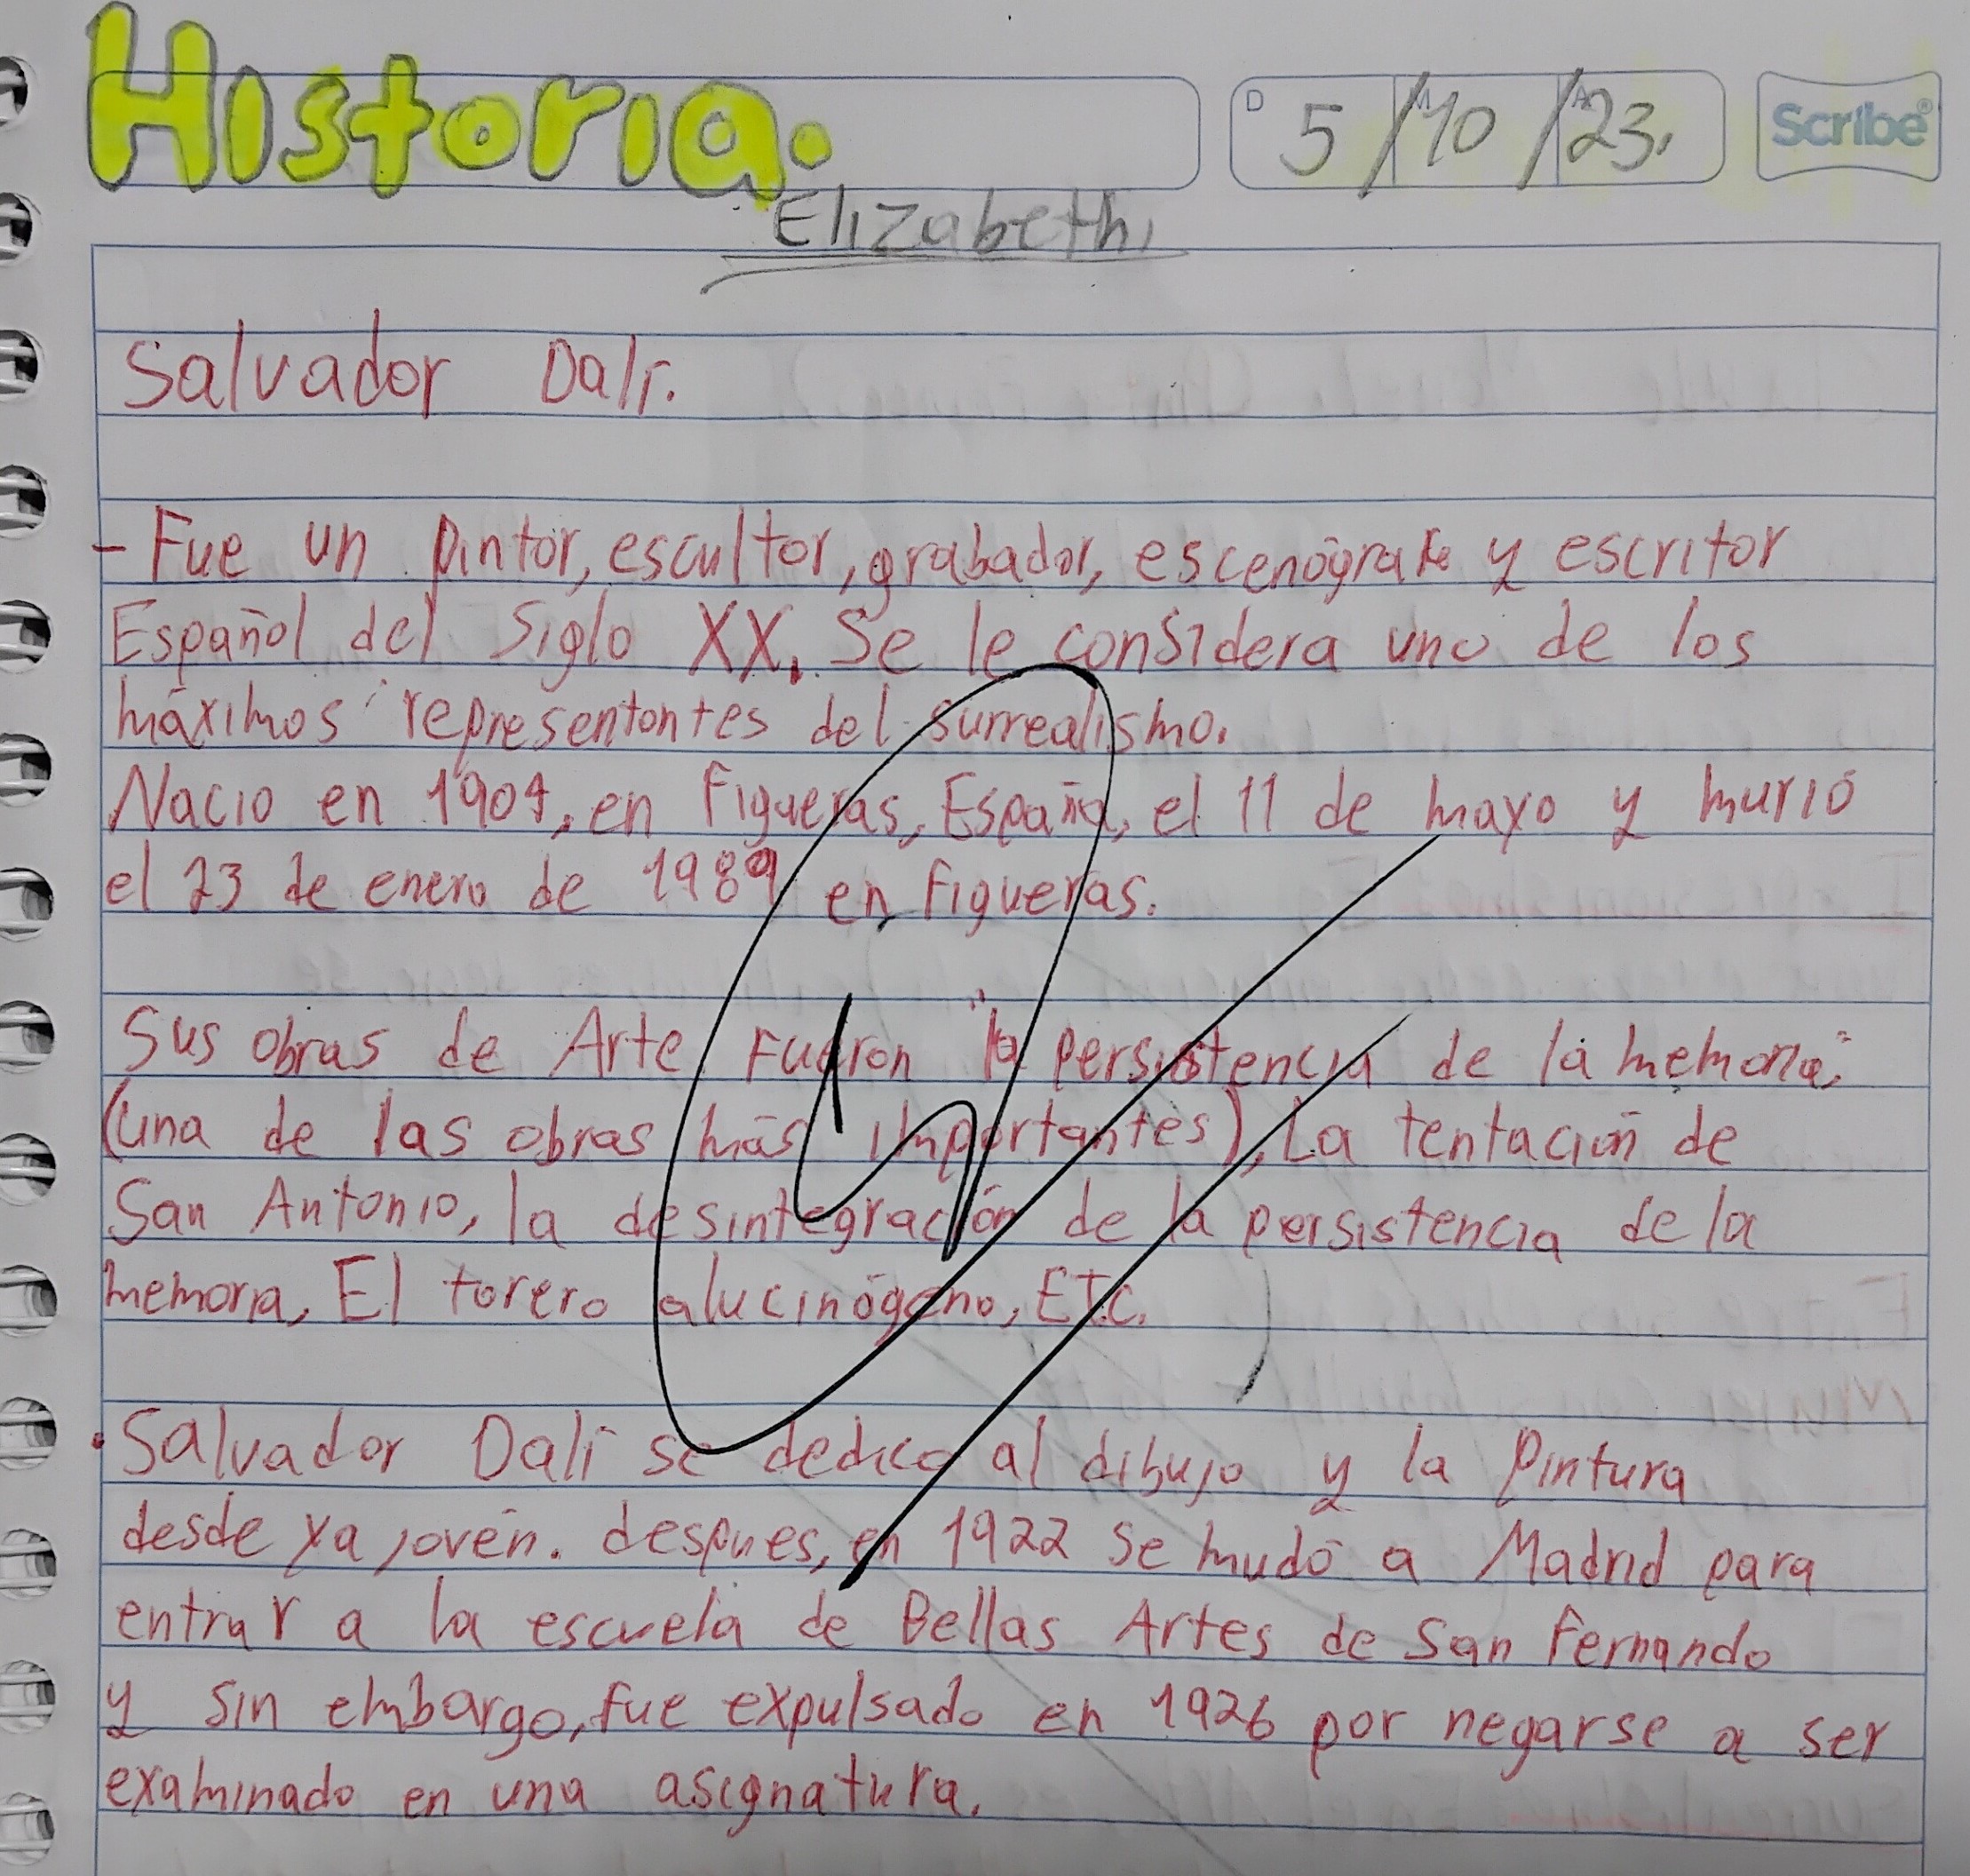 Historia.
D 5 / M 10 / A 23.
Scribe®
Elizabeth.
Salvador Dalí.
- Fue un pintor, escultor, grabador, escenógrafo y escritor
Español del Siglo XX. Se le considera uno de los
máximos representantes del surrealismo.
Nacio en 1904, en Figueras, España, el 11 de mayo y murió
el 23 de enero de 1989 en Figueras.
Sus obras de Arte Fueron "la persistencia de la memoria"
(una de las obras más importantes), La tentación de
San Antonio, la desintegración de la persistencia de la
memoria, El torero alucinógeno, ETC.
• Salvador Dalí se dedico al dibujo y la Pintura
desde ya joven. despues, en 1922 se mudó a Madrid para
entrar a la escuela de Bellas Artes de San Fernando
y sin embargo, fue expulsado en 1926 por negarse a ser
examinado en una asignatura.